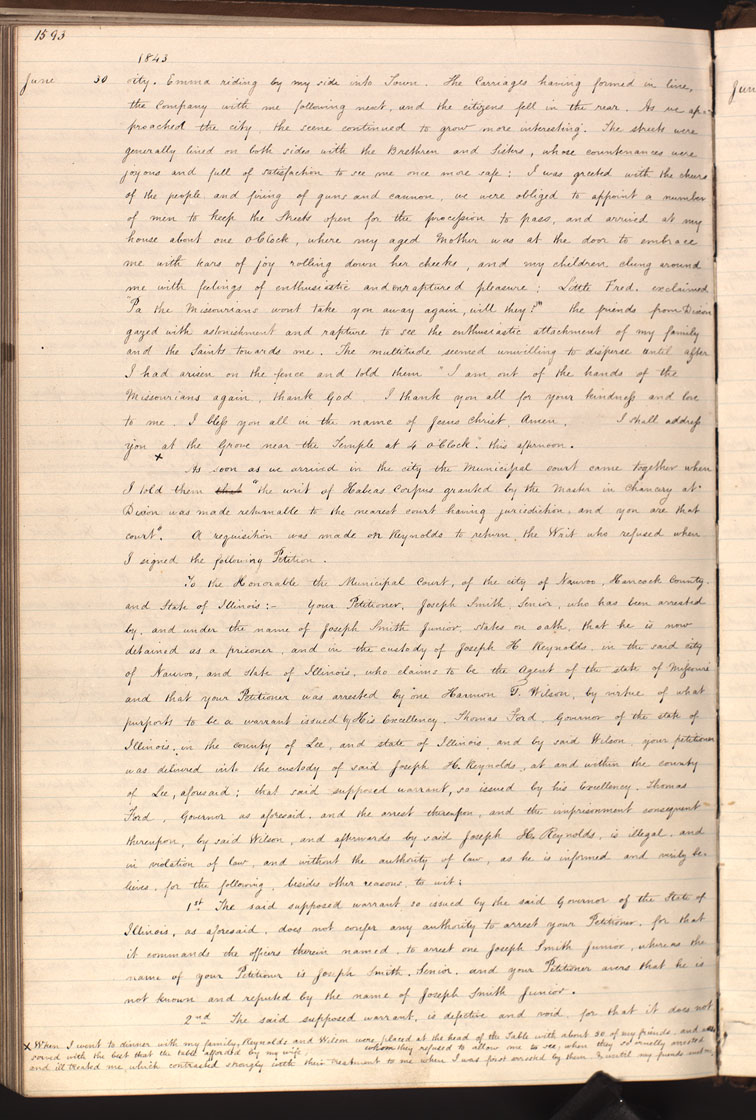 1593
1843
June 30 city. Emma riding by my side into Town. The Carriages having formed in line,
the company with me following next, and the citizens fell in the rear. As we ap-
proached the city the scene continued to grow more interesting. The streets were
generally lined on both sides with the Brethren and Sisters, whose countenances were
joyous and full of satisfaction to see me once more safe; I was greeted with the cheers
of the people and firing of guns and cannon, we were obliged to appoint a number
of men to keep the streets open for the procession to pass, and arrived at my
house about one o'Clock, where my aged Mother was at the door to embrace
me with tears of joy rolling down her cheeks, and my children clung around
me with feelings of enthusiastic and enraptured pleasure; Little Fred. exclaimed
"Pa the Missourians wont take you away again, will they?" the friends from Dixon
gazed with astonishment and rapture to see the enthusiastic attachment of my family
and the Saints towards me. The multitude seemed unwilling to disperse until after
I had arisen on the fence and told them "I am out of the hands of the
Missourians again, thank God. I thank you all for your kindness and love
to me. I bless you all in the name of Jesus Christ, Amen. I shall address
you at the Grove near the Temple at 4 o'Clock". this afternoon.
x As soon as we arrived in the city the Municipal court came together when
I told them that "the writ of Habeas Corpus granted by the Master in Chancery at
Dixon was made returnable to the nearest court having jurisdiction, and you are that
court". A requisition was made on Reynolds to return the Writ who refused when
I signed the following Petition.
To the Honorable the Municipal Court, of the city of Nauvoo, Hancock County
and State of Illinois:- Your Petitioner, Joseph Smith, Senior, who has been arrested
by, and under the name of Joseph Smith Junior, states on oath, that he is now
detained as a prisoner, and in the custody of Joseph H Reynolds, in the said city
of Nauvoo, and state of Illinois, who claims to be the Agent of the state of Missouri
and that your Petitioner was arrested by one Harmon T. Wilson, by virtue of what
purports to be a warrant issued by His Excellency, Thomas Ford, Governor of the state of
Illinois, in the county of Lee, and state of Illinois, and by said Wilson, your petitioner
was delivered into the custody of said Joseph H. Reynolds, at and within the county
of Lee, aforesaid; that said supposed warrant, so issued by his Excellency, Thomas
Ford, Governor as aforesaid, and the arrest thereupon, and the imprisonment consequent
thereupon, by said Wilson, and afterwards by said Joseph H. Reynolds, is illegal, and
in violation of law, and without the authority of law, as he is informed and verily be-
lieves, for the following, besides other reasons, to wit;
1st The said supposed warrant so issued by the said Governor of the State of
Illinois, as aforesaid, does not confer any authority to arrest your Petitioner, for that
it commands the officers therein named, to arrest one Joseph Smith Junior, whereas the
name of your Petitioner is Joseph Smith, Senior, and your Petitioner avers that he is
not known and reputed by the name of Joseph Smith Junior.
2nd The said supposed warrant, is defective and void, for that it does not
x When I went to dinner with my family, Reynolds and Wilson were placed at the head of the Table with about 50 of my friends, and were
served with the best that the table afforded by my wife, whom they refused to allow me to see, when they so cruelly arrested
and ill treated me, which contrasted strongly with their treatment to me when I was first arrested by them & until my friends
Jun